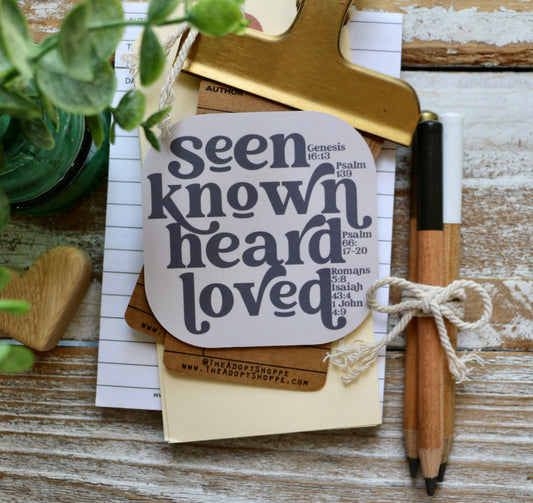 AUTHOR
seen
Genesis
16:13
known
Psalm
139
heard
Psalm
66:
17-20
loved
Romans
5:8
Isaiah
43:4
1 John
4:9
@TheAdoptShoppe
www.TheAdoptShoppe.com